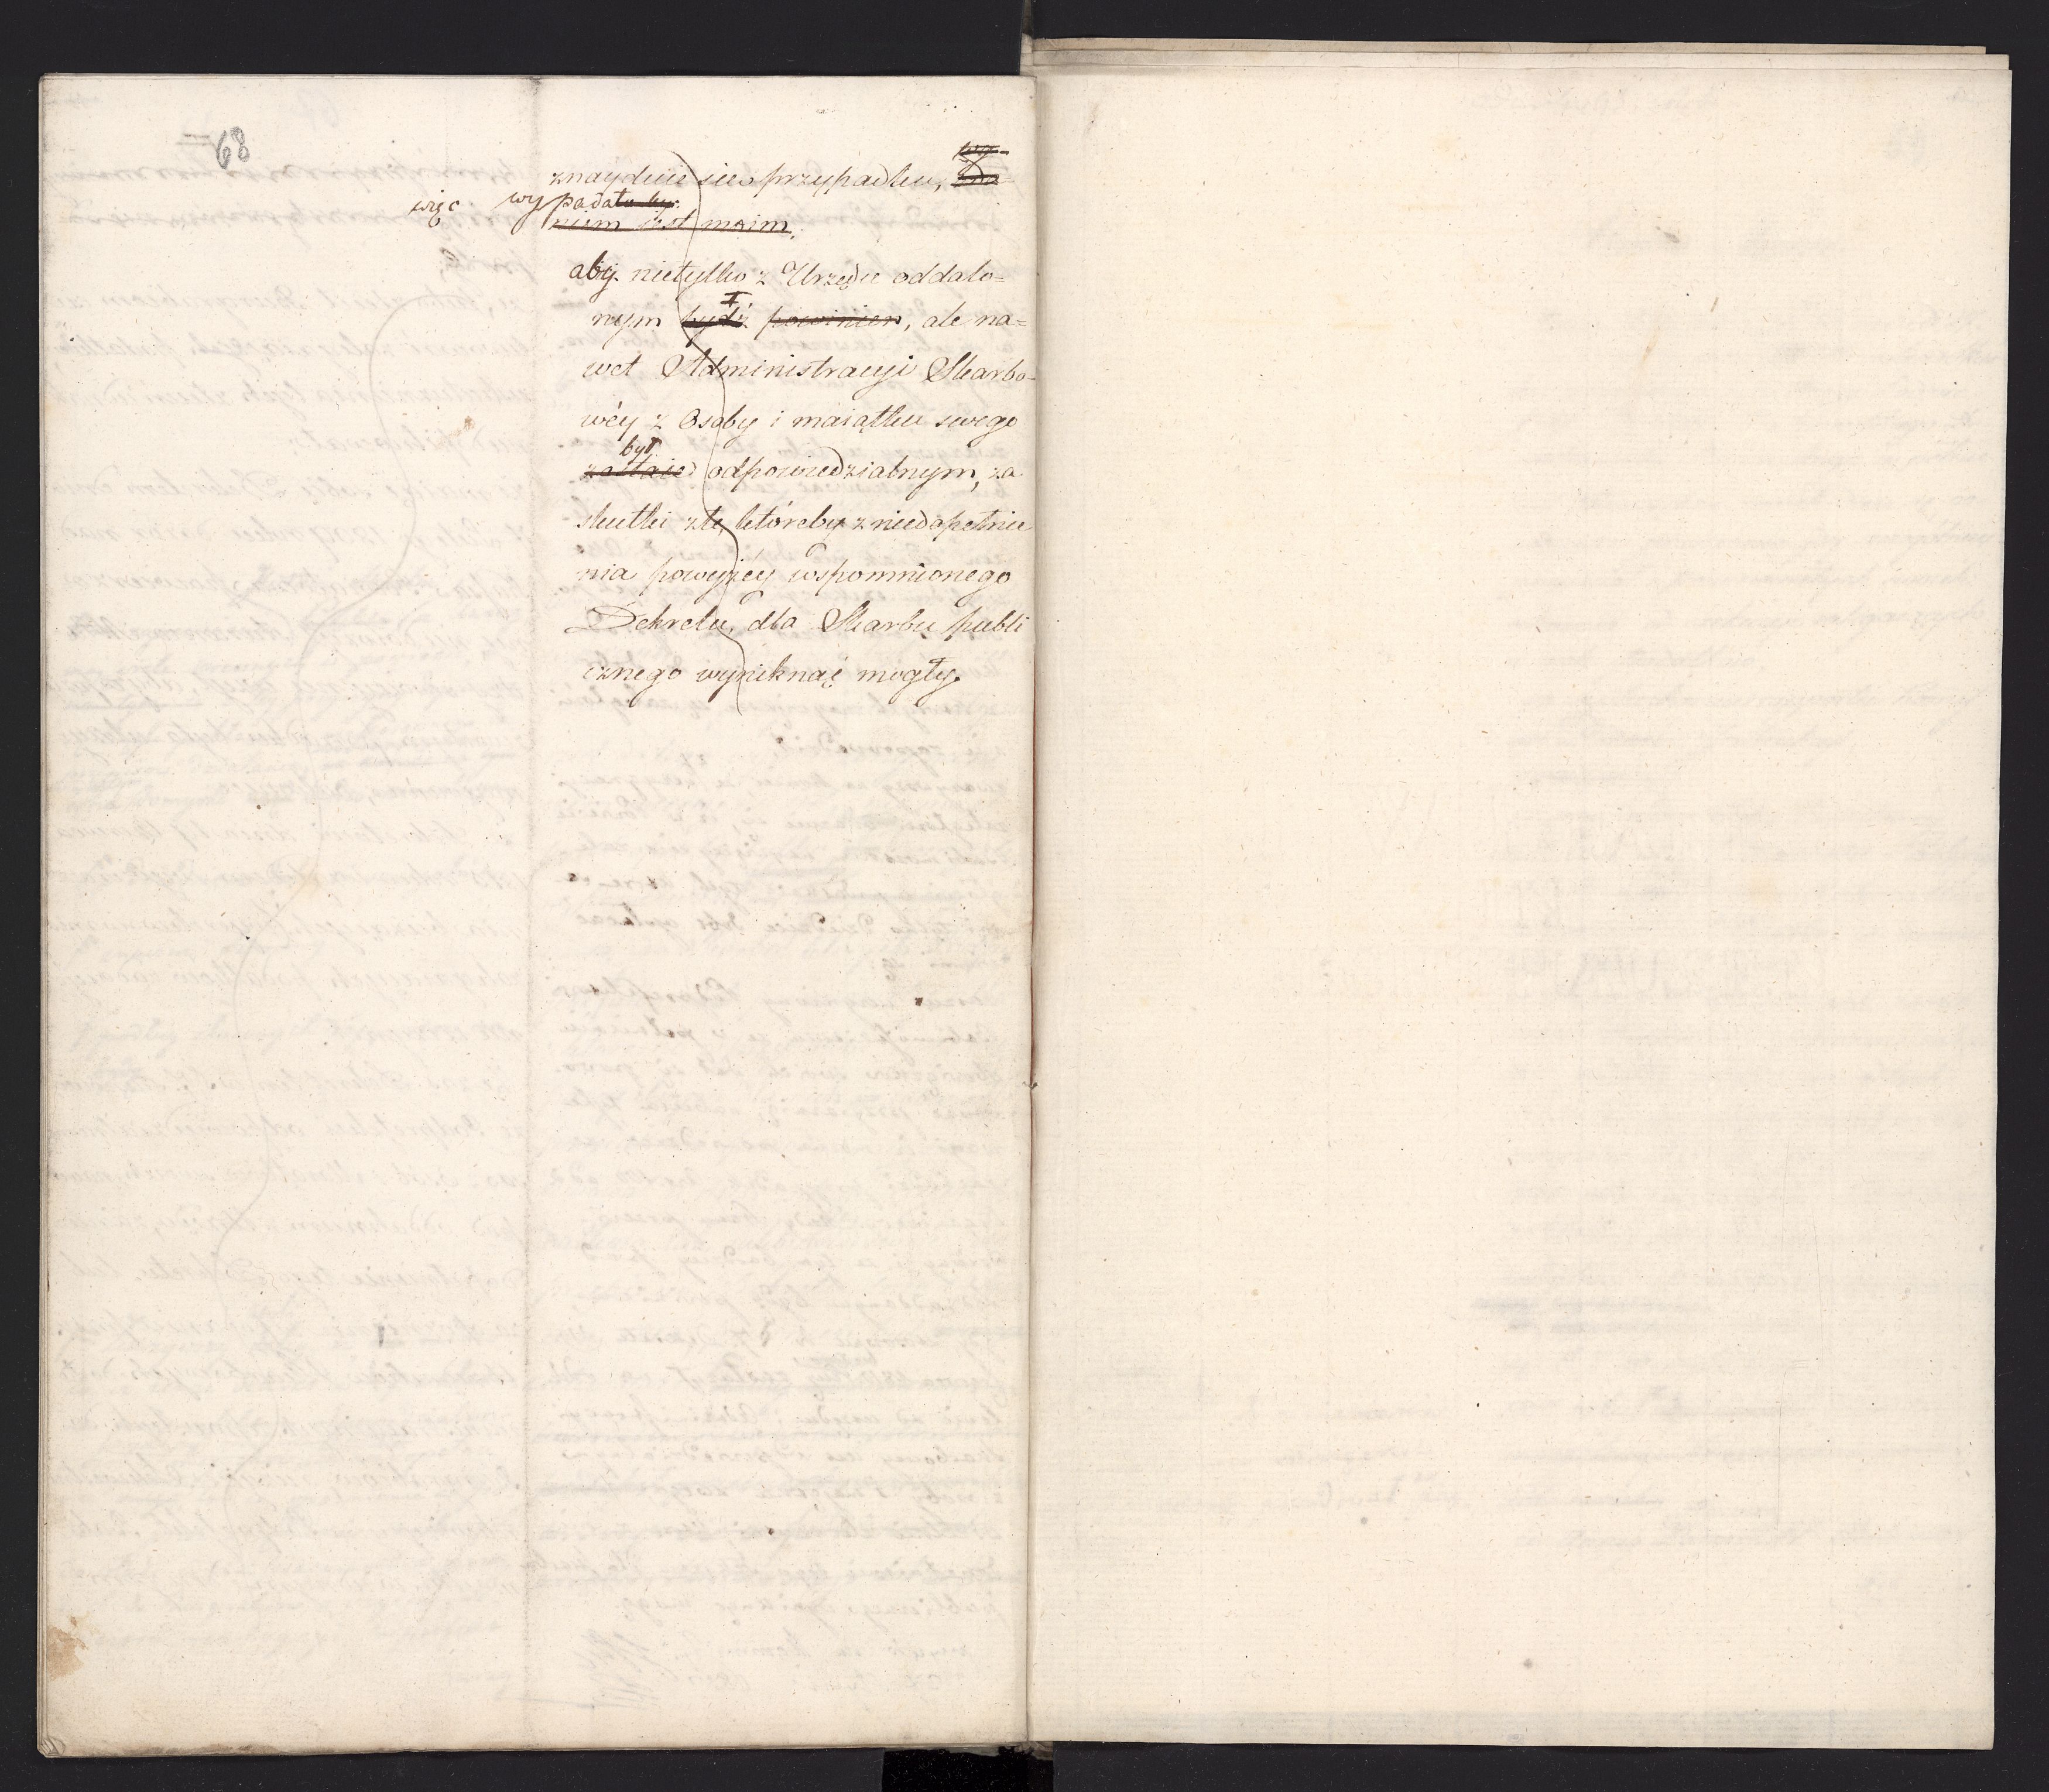 68
znayduie się przypadku,
więc wypadało by
niem jest moim,
aby nietylko z Urzędu oddalo=
nym bydź powinien, ale na=
wet Administracyi Skarbo-
wéy z Osoby i maiątku swego
był
zostaie odpowiedzialnym, za
skutki złe, któreby z niedopełnie
nia powyżéy wspomnionego
Dekretu, dla Skarbu publi
cznego wyniknąć mogły.